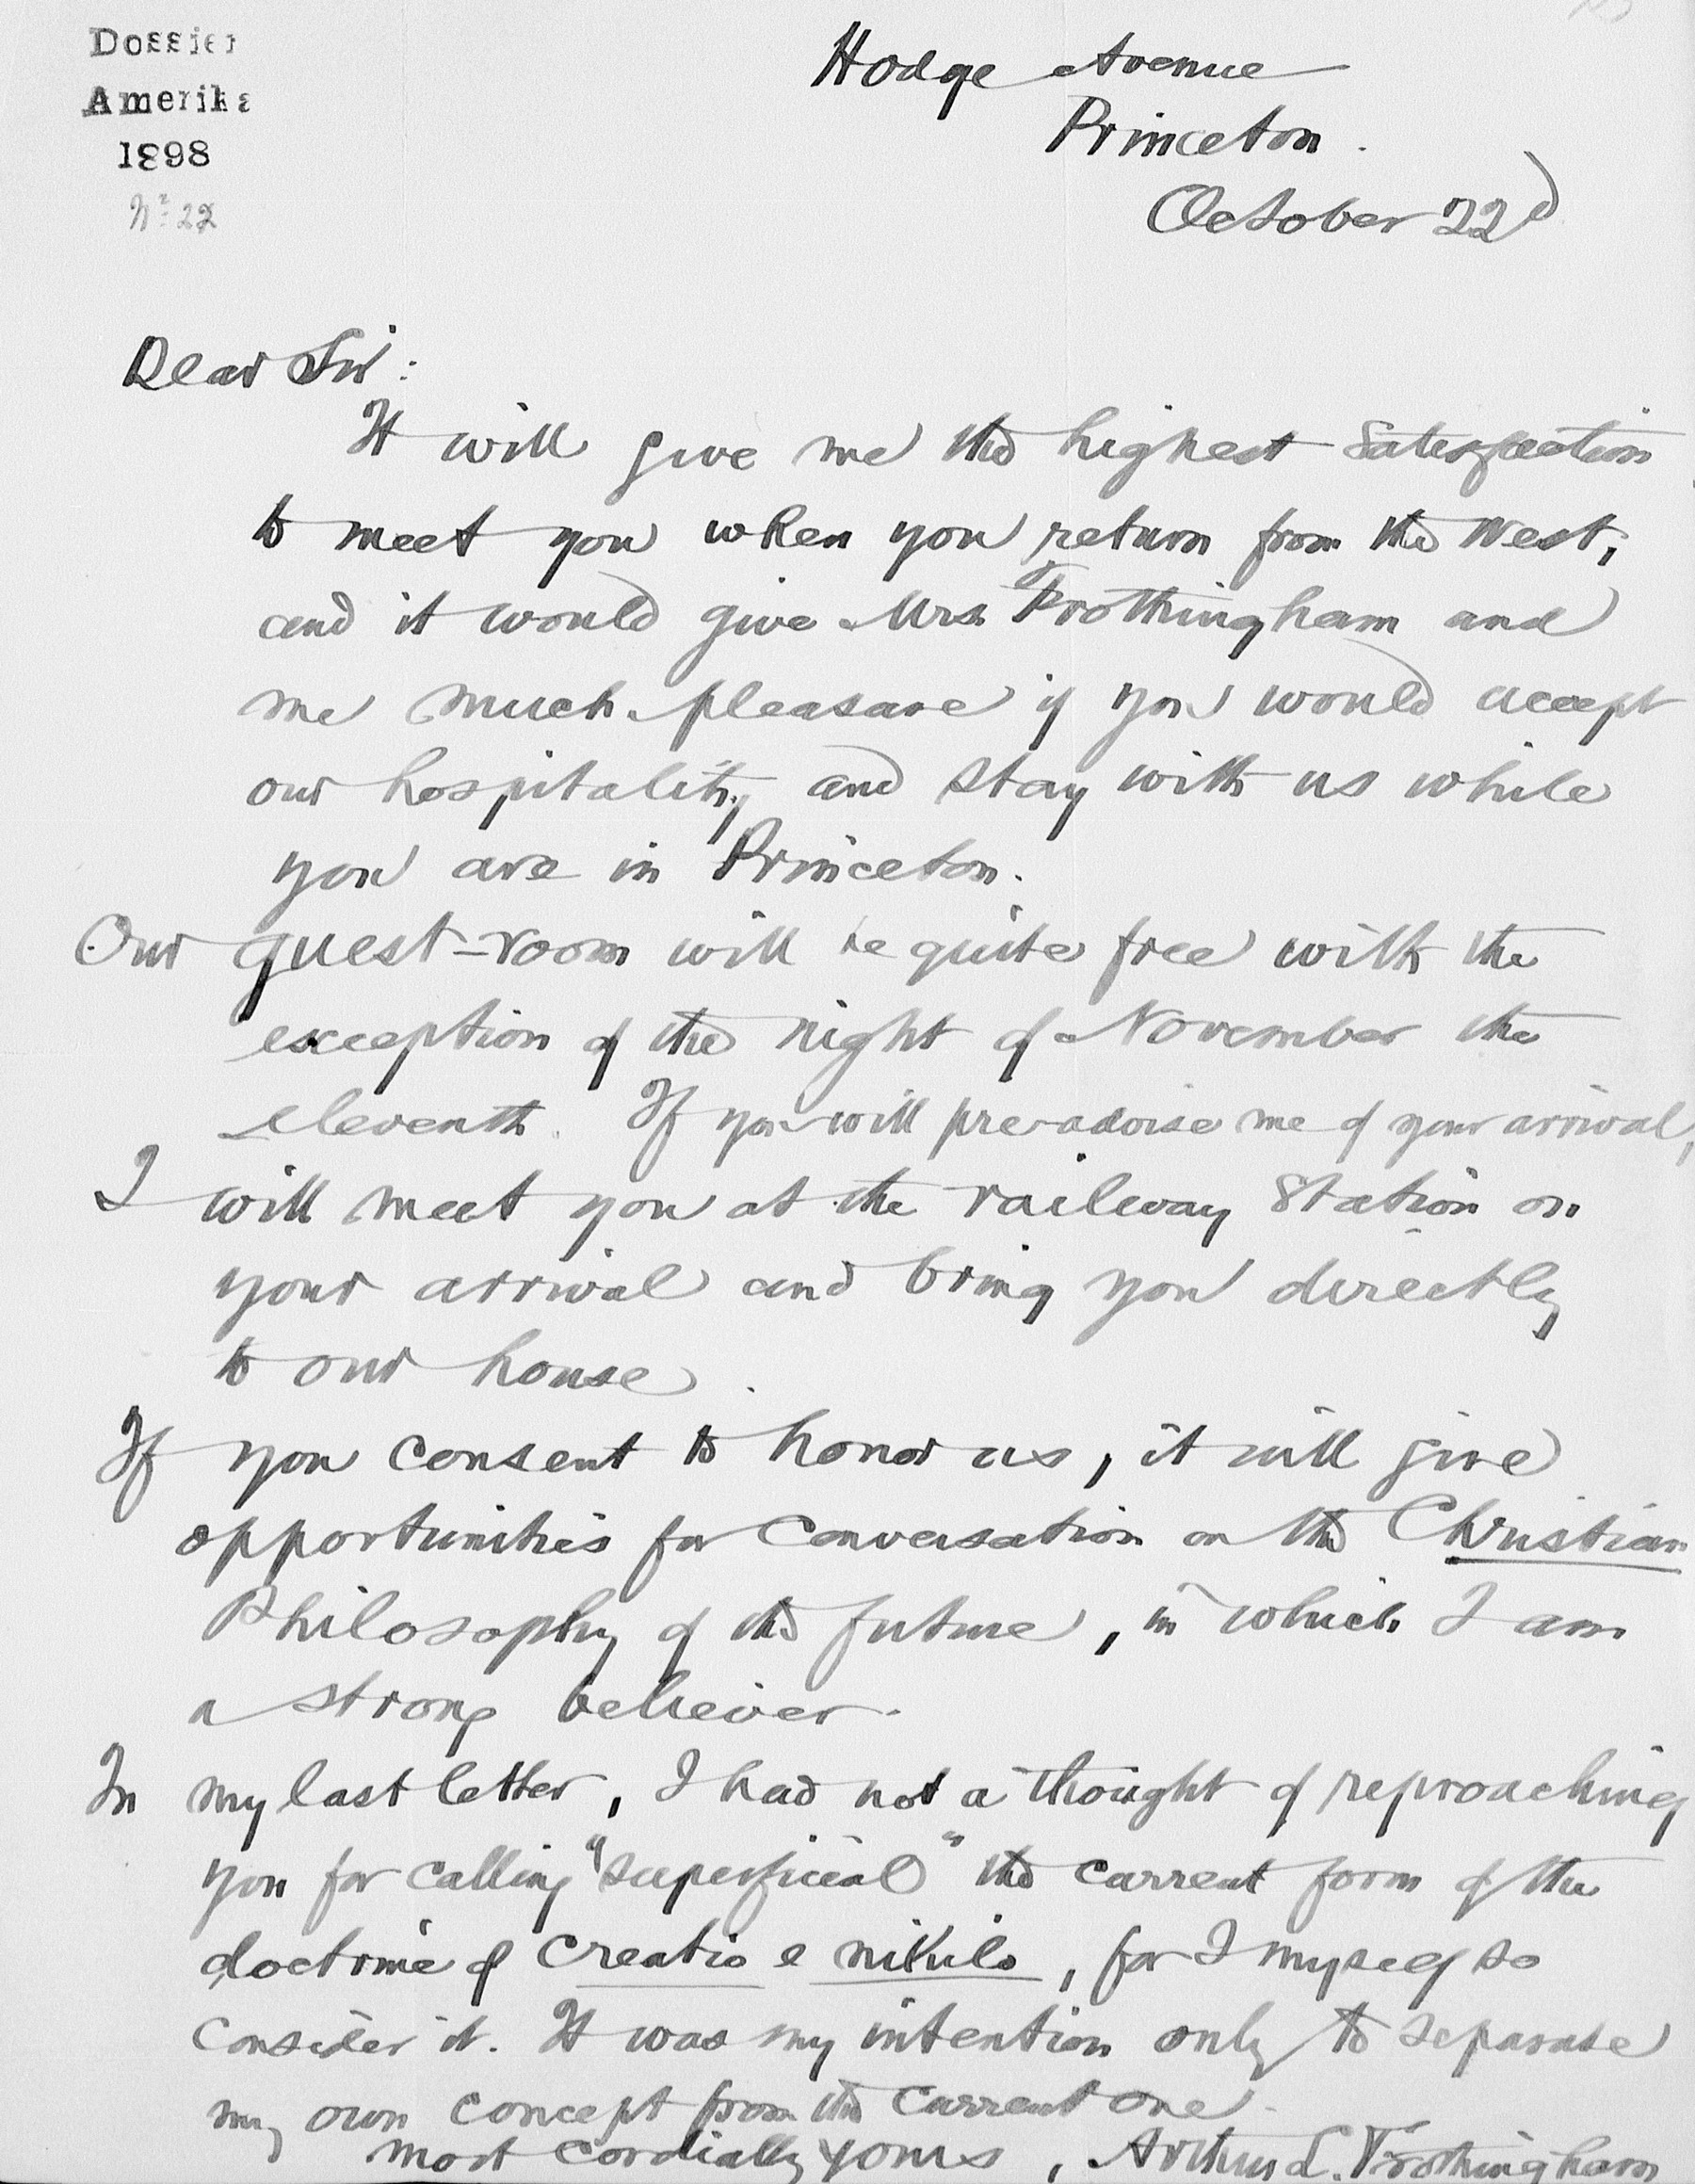 Dossier
Amerika
1898
No 22
Hodge Avenue
Princeton.
October 22d
Dear Sir:
It will give me the highest satisfaction
to meet you when you return from the West,
and it would give Mrs. Frothingham and
me much pleasure if you would accept
our hospitality and stay with us while
you are in Princeton.
Our guest-room will be quite free with the
exception of the night of November the
eleventh. If you will pre-advise me of your arrival,
I will meet you at the railway station on
your arrival and bring you directly
to our house.
If you consent to honor us, it will give
opportunities for conversation on the Christian
Philosophy of the future, in which I am
a strong believer.
In my last letter, I had not a thought of reproaching
you for calling "superficial" the current form of the
doctrine of creatio e nihilo, for I myself so
consider it. It was my intention only to separate
my own concept from the current one.
most cordially yours, Arthur L. Frothingham